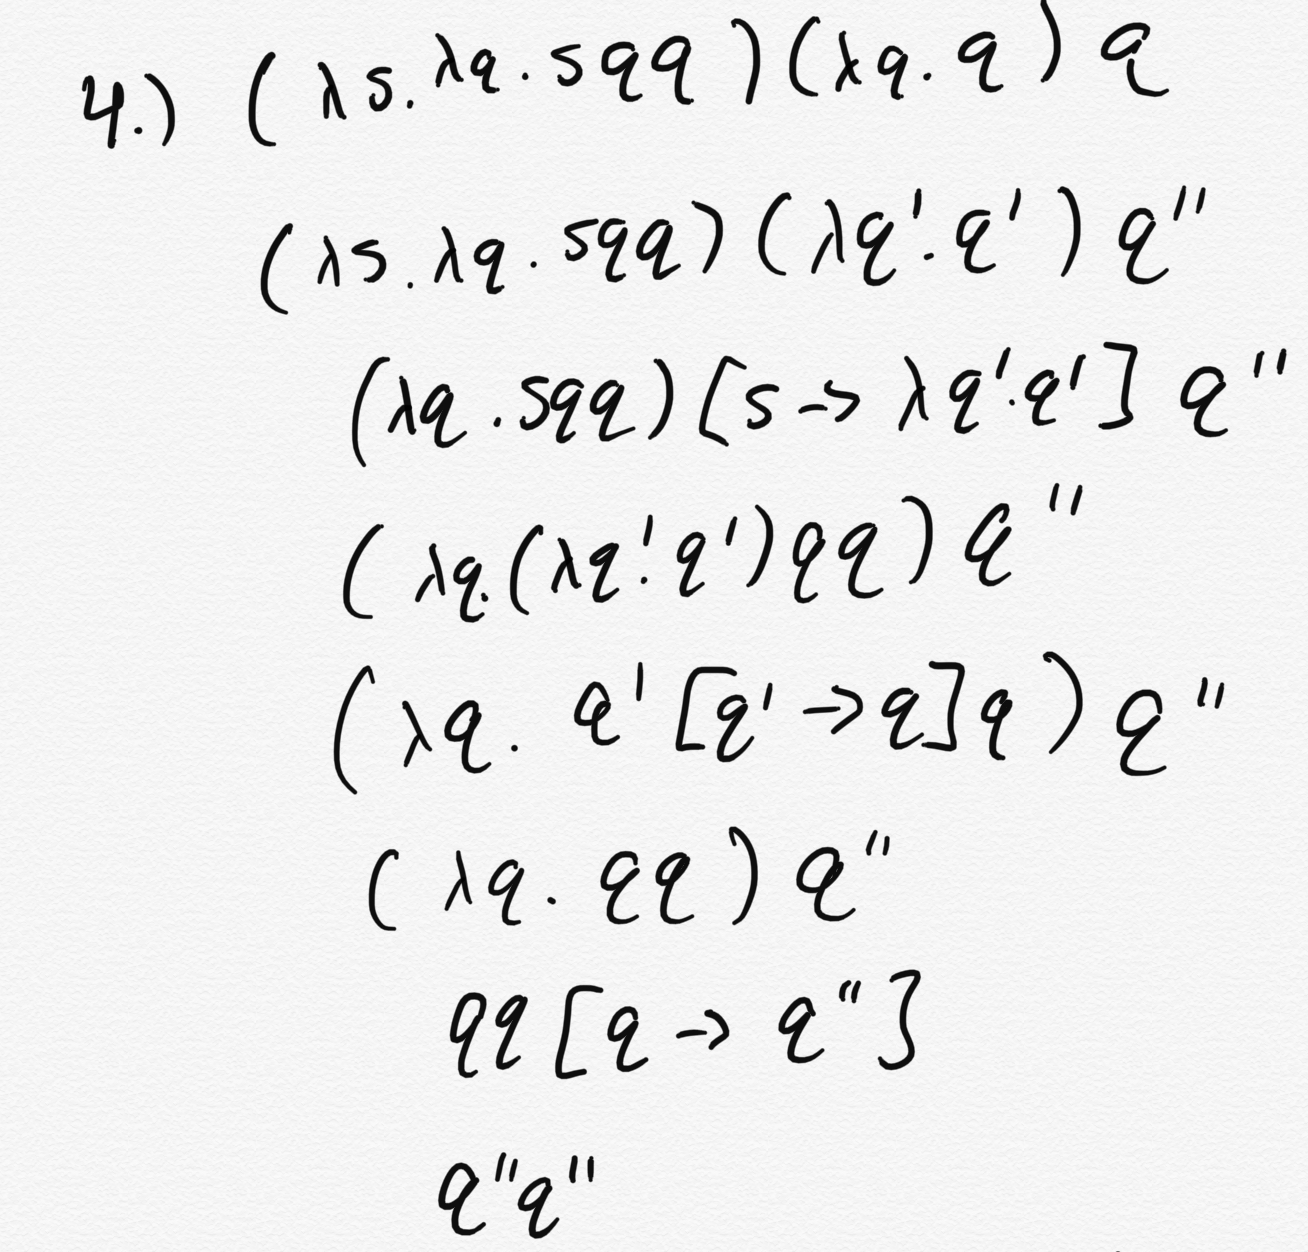 4.) (λs.λq.sqq)(λq.q)q
(λs.λq.sqq)(λq'.q')q''
(λq.sqq)[s->λq'.q']q''
(λq.(λq'.q')qq)q''
(λq.q'[q'->q]q)q''
(λq.qq)q''
qq[q->q'']
q''q''